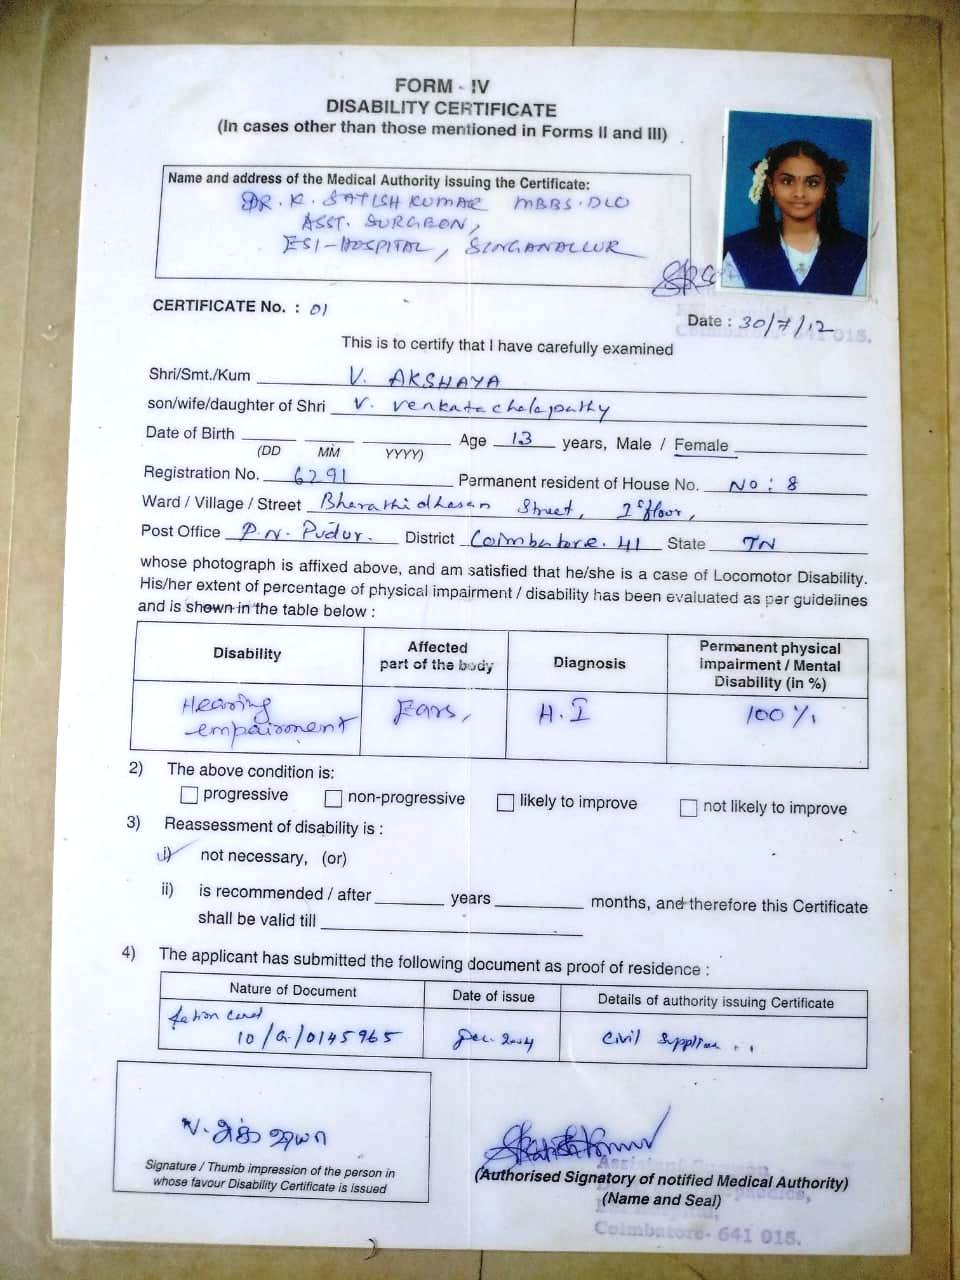 FORM - IV
DISABILITY CERTIFICATE
(In cases other than those mentioned in Forms II and III)
Name and address of the Medical Authority issuing the Certificate:
DR. K. SATISH KUMAR MBBS. DLO
ASST. SURGEON,
ESI-HOSPITAL, SINGANALLUR
CERTIFICATE No. : 01
Date : 30/7/12
Coimbatore- 641 015.
This is to certify that I have carefully examined
Shri/Smt./Kum V. AKSHAYA
son/wife/daughter of Shri V. Venkatachalapathy
Date of Birth Age 13 years, Male / Female
(DD MM YYYY)
Registration No. 6291 Permanent resident of House No. No: 8
Ward / Village / Street Bharathidhasan Street, floor,
Post Office P.N. Pudur. District Coimbatore. 41 State TN
whose photograph is affixed above, and am satisfied that he/she is a case of Locomotor Disability.
His/her extent of percentage of physical impairment / disability has been evaluated as per guidelines
and is shown in the table below :
Disability Affected part of the body Diagnosis Permanent physical impairment / Mental Disability (in %)
Hearing empairment Ears, H.I 100%
2) The above condition is:
progressive non-progressive likely to improve not likely to improve
3) Reassessment of disability is :
i) not necessary, (or)
ii) is recommended / after years months, and therefore this Certificate
shall be valid till
4) The applicant has submitted the following document as proof of residence :
Nature of Document Date of issue Details of authority issuing Certificate
Ration Card 10/G/0145965 Dec. 2004 Civil
V. அக்ஷயா
Signature / Thumb impression of the person in
whose favour Disability Certificate is issued
(Authorised Signatory of notified Medical Authority)
(Name and Seal)
Coimbatore- 641 015.